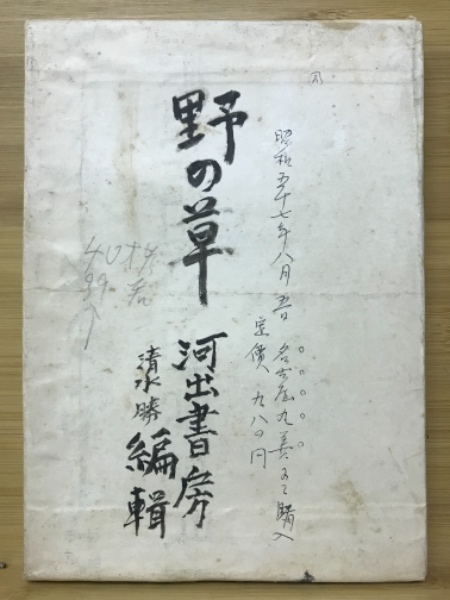 昭和五十七年八月五日 名古屋丸善にて購入
定價 九八〇円
野の草
河出書房
清水勝
編輯